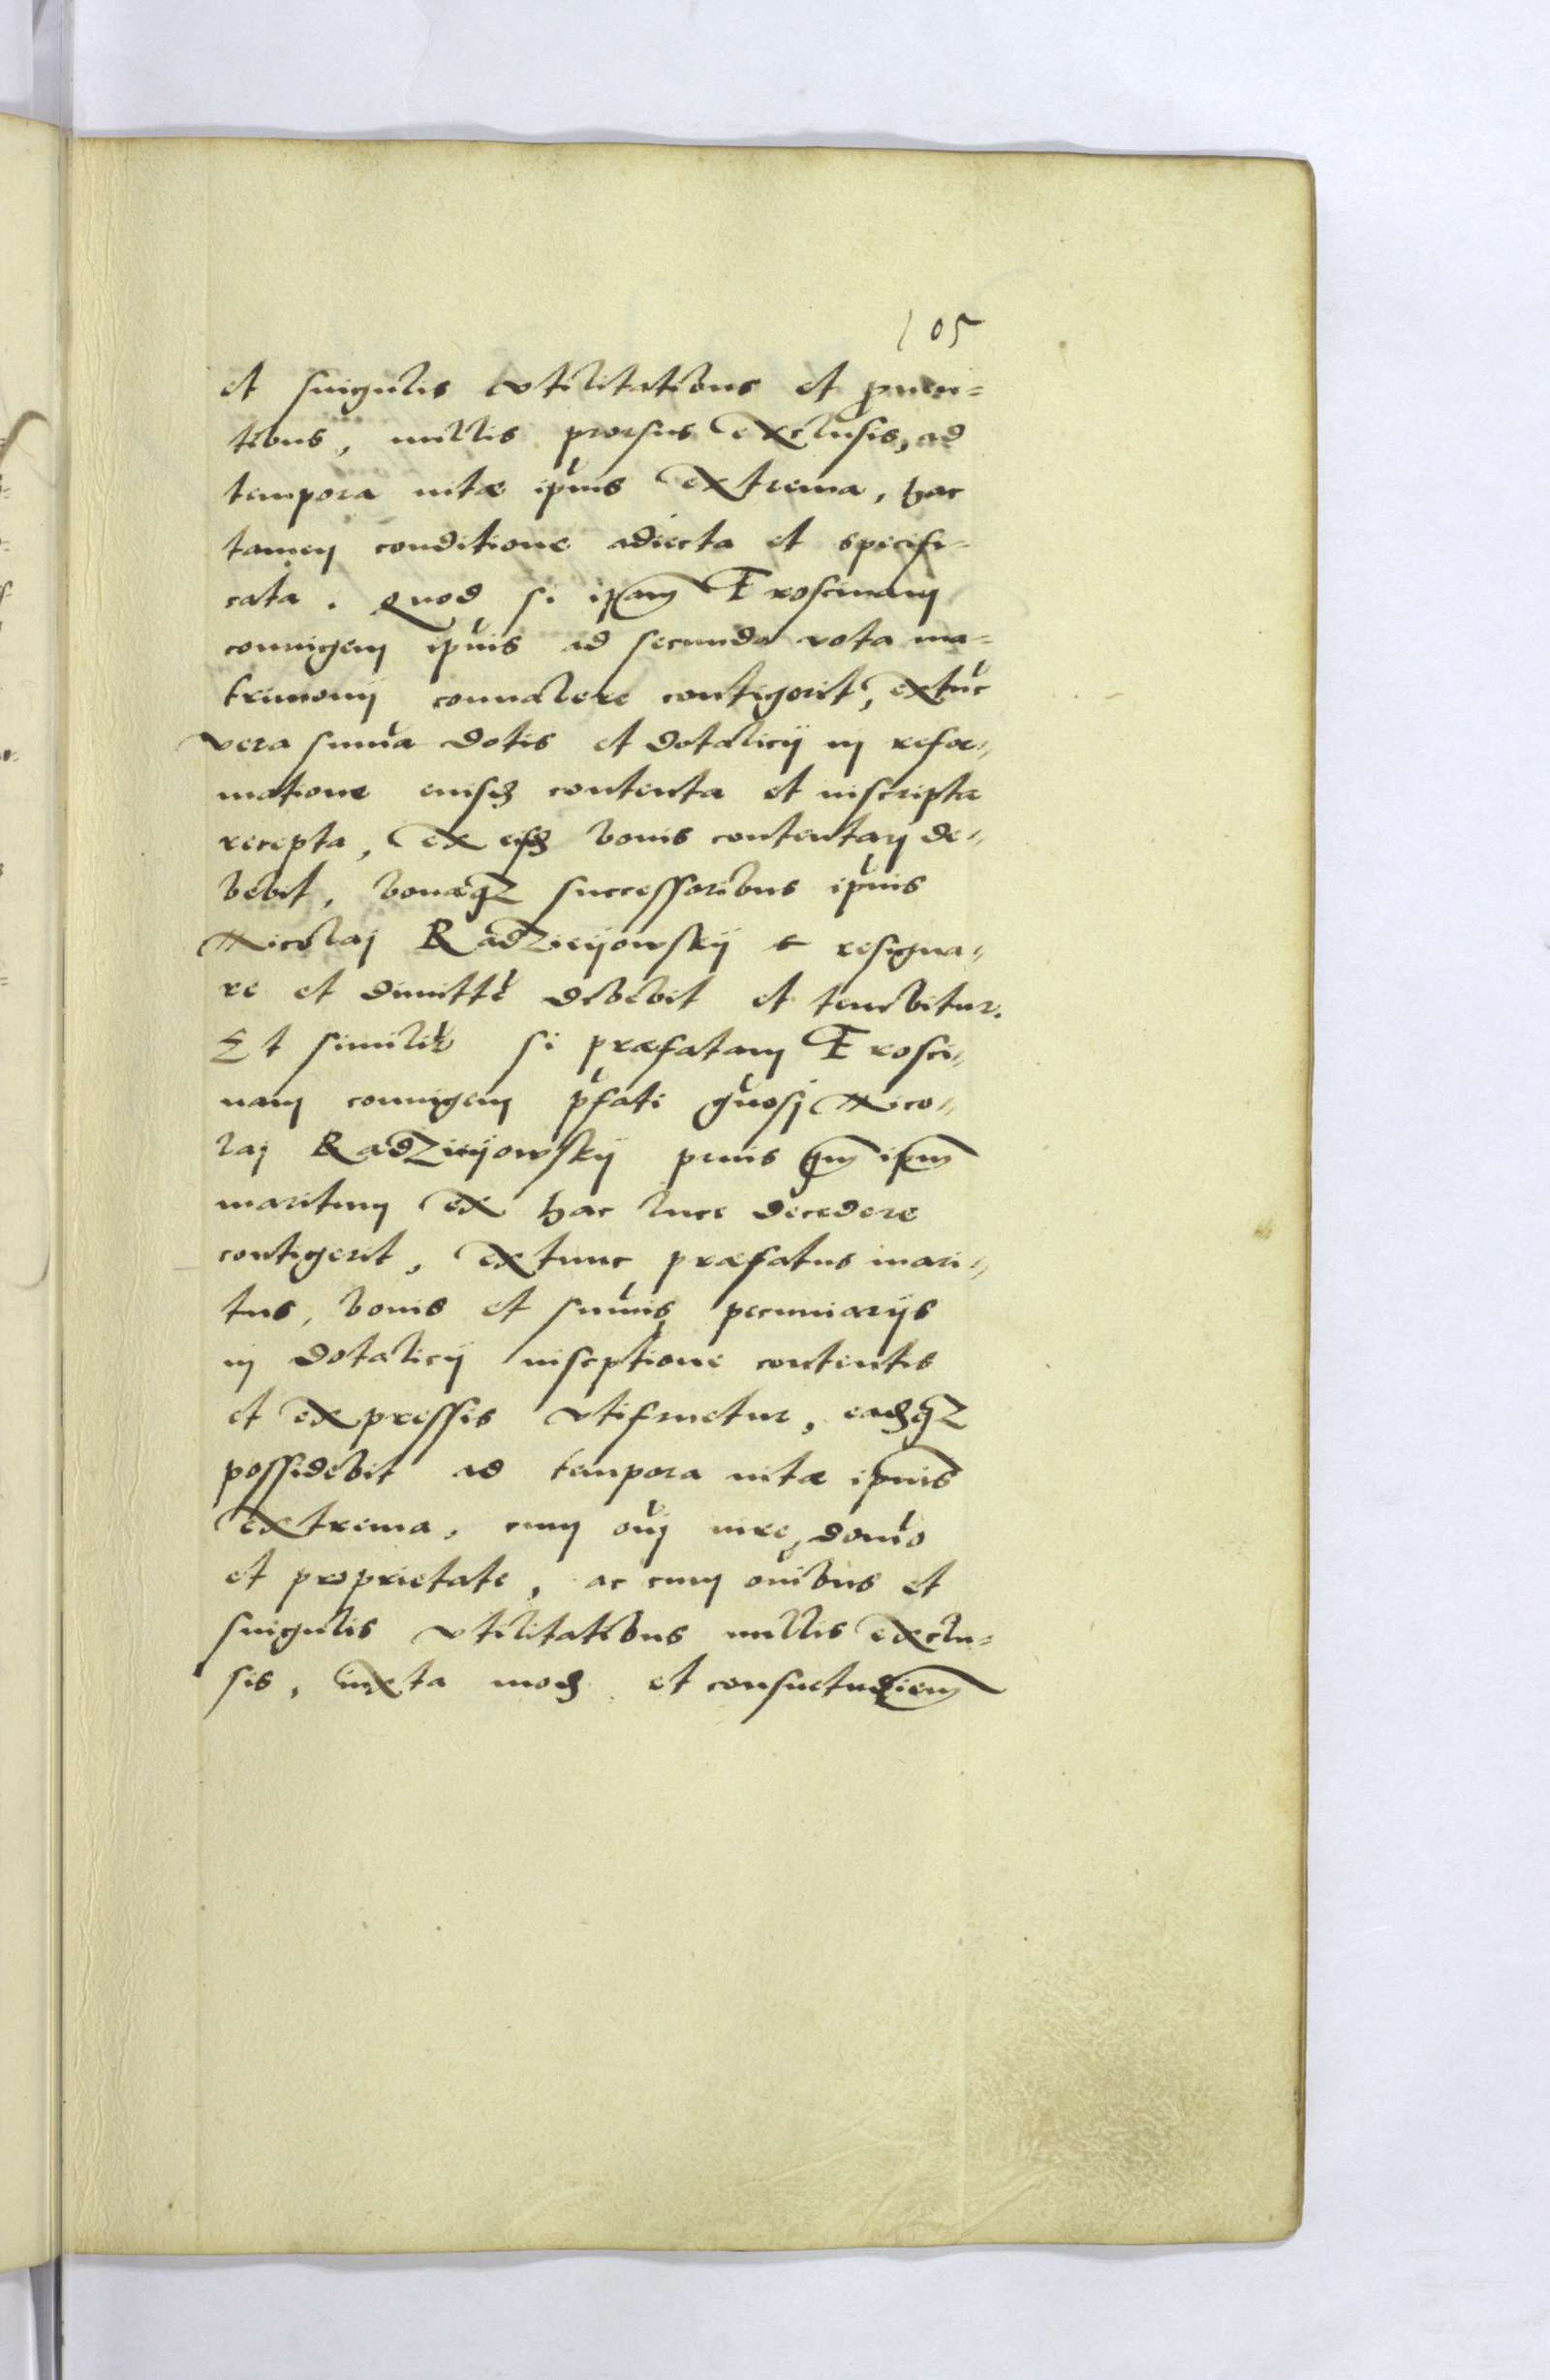 105
et singulis vtilitatibus et prouen=
tibus, nullis prorsus exclusis, ad
tempora uitæ ipius extrema, hac
tamen conditione adiecta et specifi=
cata. Quod si ipam Froscinam
coniugem ipius ad secunda vota ma=
trimonij conualere contigerit, extuc
vera suma dotis et dotalicij in refor=
matione eiusd contenta et inscripta
recepta, ex eisd bonis contentari de=
bebit, bonaqz successoribus ipius
Nicolai Radzieijowskij resigna=
re et dimitte debebit et tenebitur.
Et similir si præfatam Frosci=
nam coniugem pfati gnosi Nico=
lai Radzieijowskij prius qm ipm
maritum ex hac luce decedere
contigerit, extunc præfatus mari=
tus, bonis et sumis pecuniarijs
in dotalicij inscptione contentis
et expressis vtifruetur, eadqz
possidebit ad tempora uitæ ipius
extrema, cum oni iure, domo
et proprietate, ac cum onibus et
singulis vtilitatibus nullis exclu=
sis, iuxta mod et consuetudiem